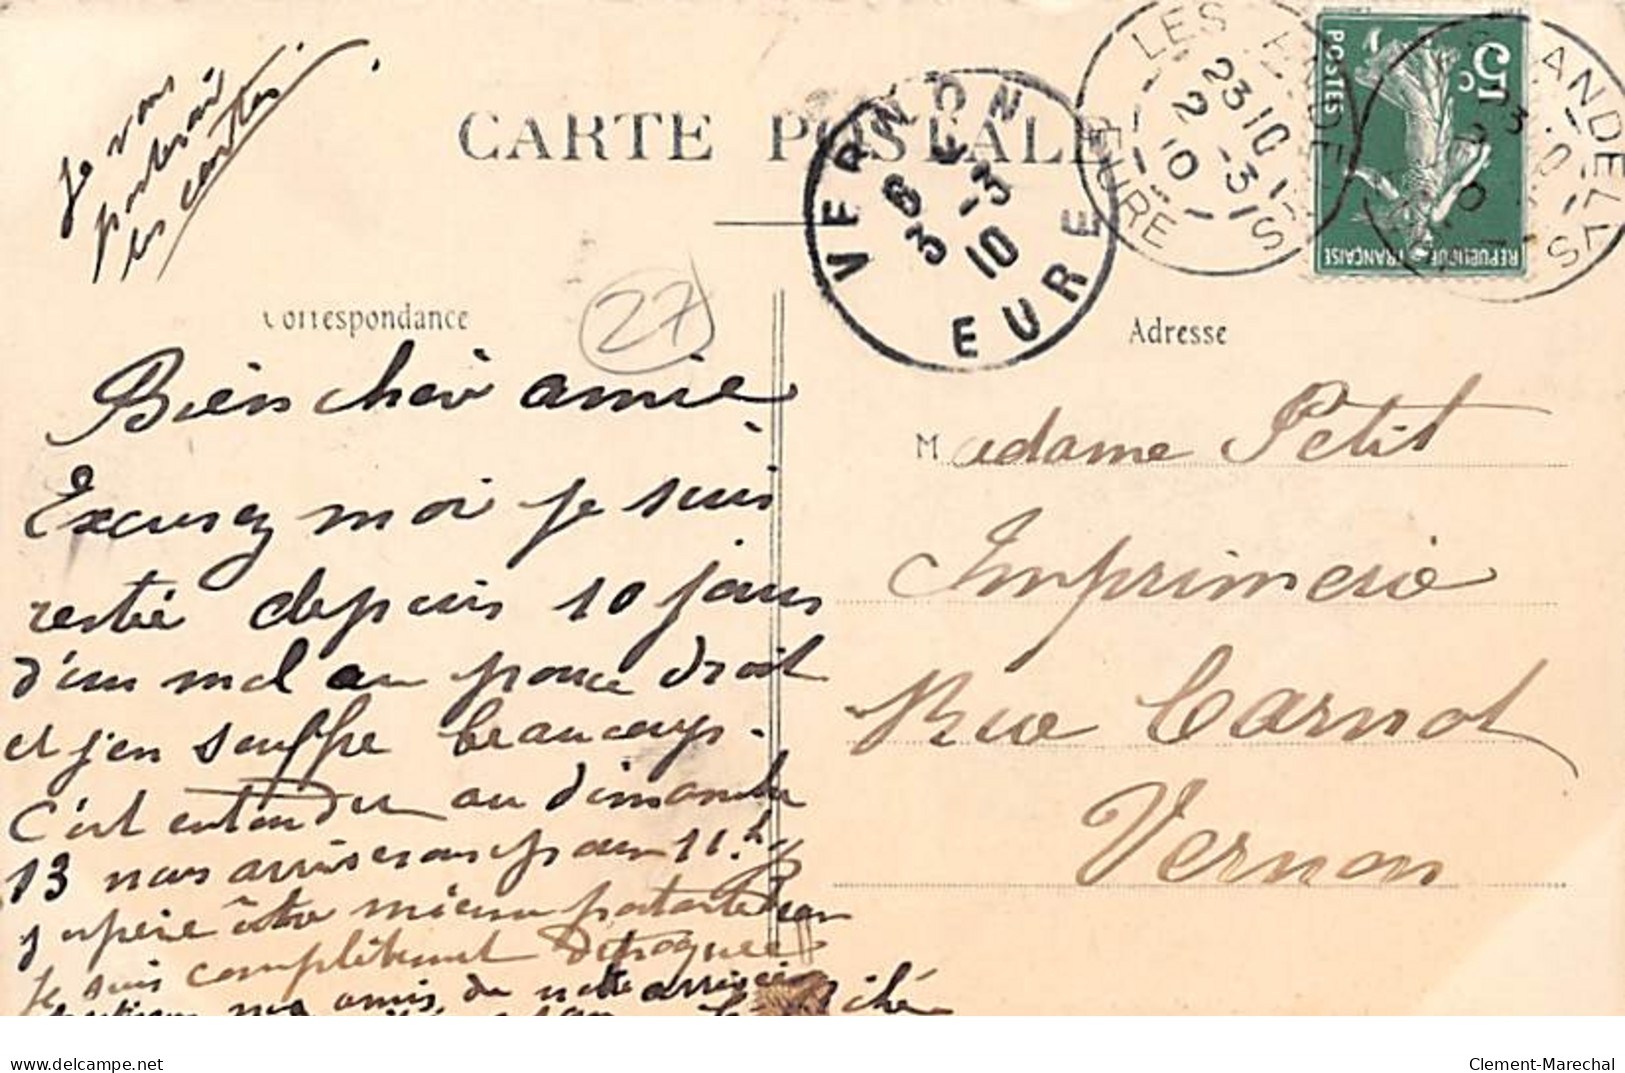 Je vous
porterai
les cartes
CARTE POSTALE
VERNON
EURE
8 E
3 -3
10
LES ANDELYS
23 10 -3
2 10
EURE
5c
POSTES
REPUBLIQUE FRANÇAISE
27
Correspondance
Adresse
Bien cher amie
Excusez moi je suis
restié depuis 10 jours
d'un mal au pouce droit
et j'en souffre beaucoup.
C'est entendu au dimanche
13 nous arriserons pour 11.h
j'espère être mieux portante car
Je suis complètement détraquée
nos amis de notre arrivée
Madame Petit
Imprimerie
Rue Carnot
Vernon
www.delcampe.net
Clement-Marechal